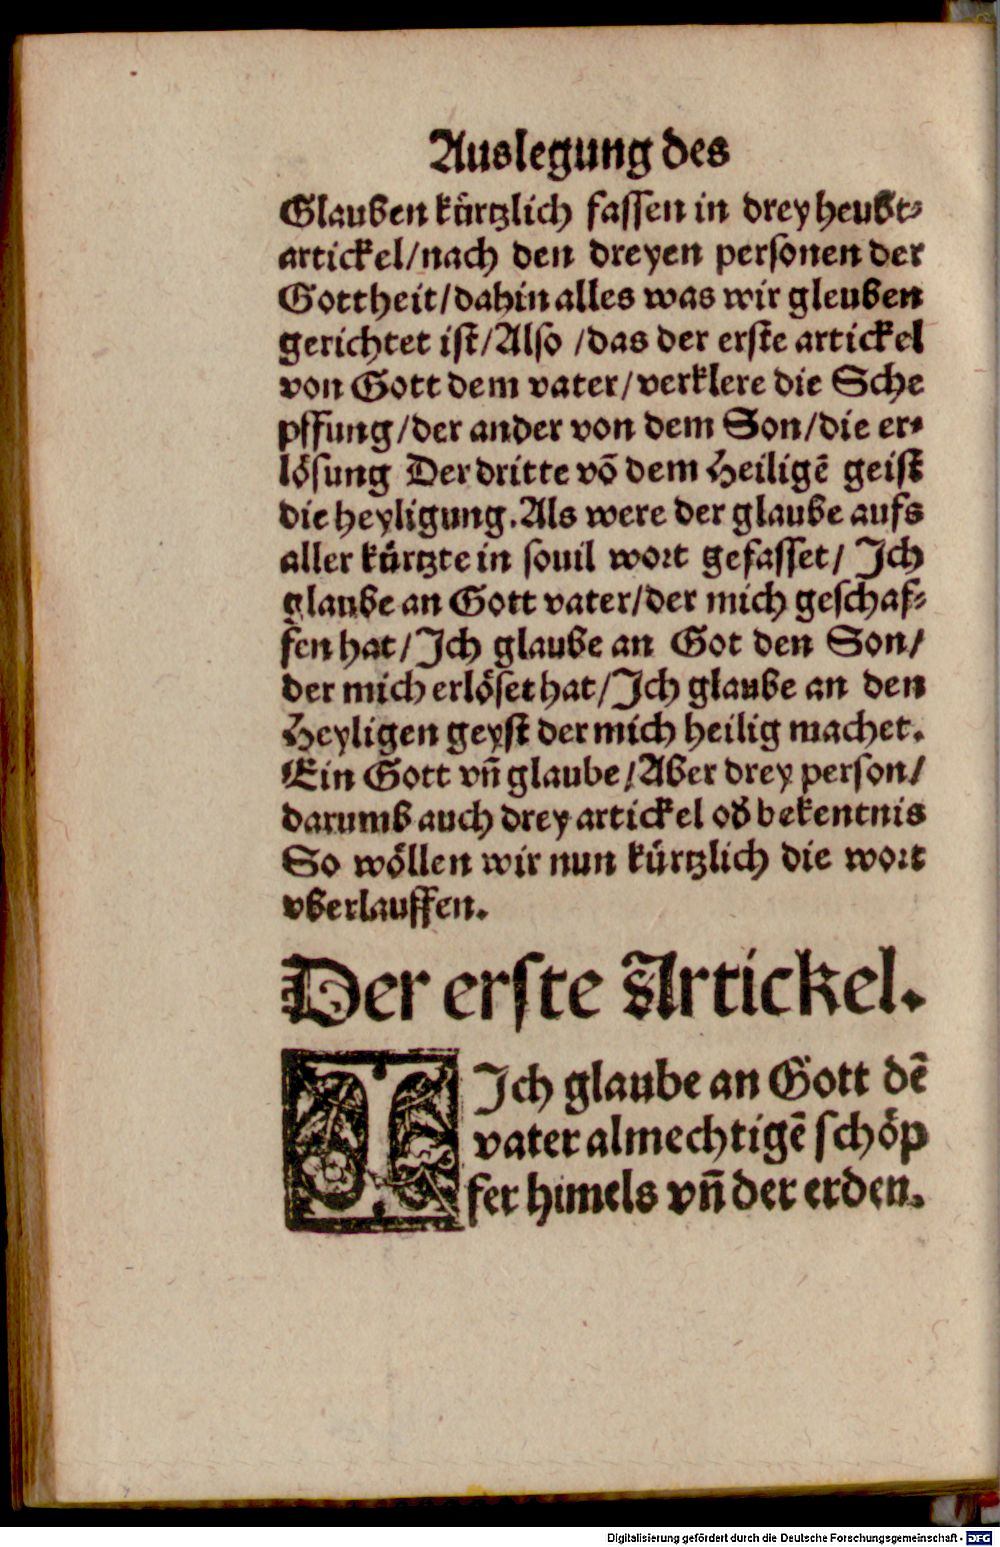 Auslegung des
Glauben kürtzlich fassen in drey heubt-
artickel/nach den dreyen personen der
Gottheit/dahin alles was wir gleuben
gerichtet ist/Also /das der erste artickel
von Gott dem vater/verklere die Sche
pffung/der ander von dem Son/die er-
lösung Der dritte võ dem Heiligẽ geist
die heyligung.Als were der glaube aufs
aller kürtzte in souil wort gefasset/ Ich
glaube an Gott vater/der mich geschaf-
fen hat/Ich glaube an Got den Son/
der mich erlöset hat/Ich glaube an den
Heyligen geyst der mich heilig machet.
Ein Gott vñ glaube/Aber drey person/
darumb auch drey artickel oð bekentnis
So wöllen wir nun kürtzlich die wort
vberlauffen.
Der erste Artickel.
I Ich glaube an Gott dẽ
vater almechtigẽ schöp
fer himels vñ der erden.
Digitalisierung gefördert durch die Deutsche Forschungsgemeinschaft - DFG